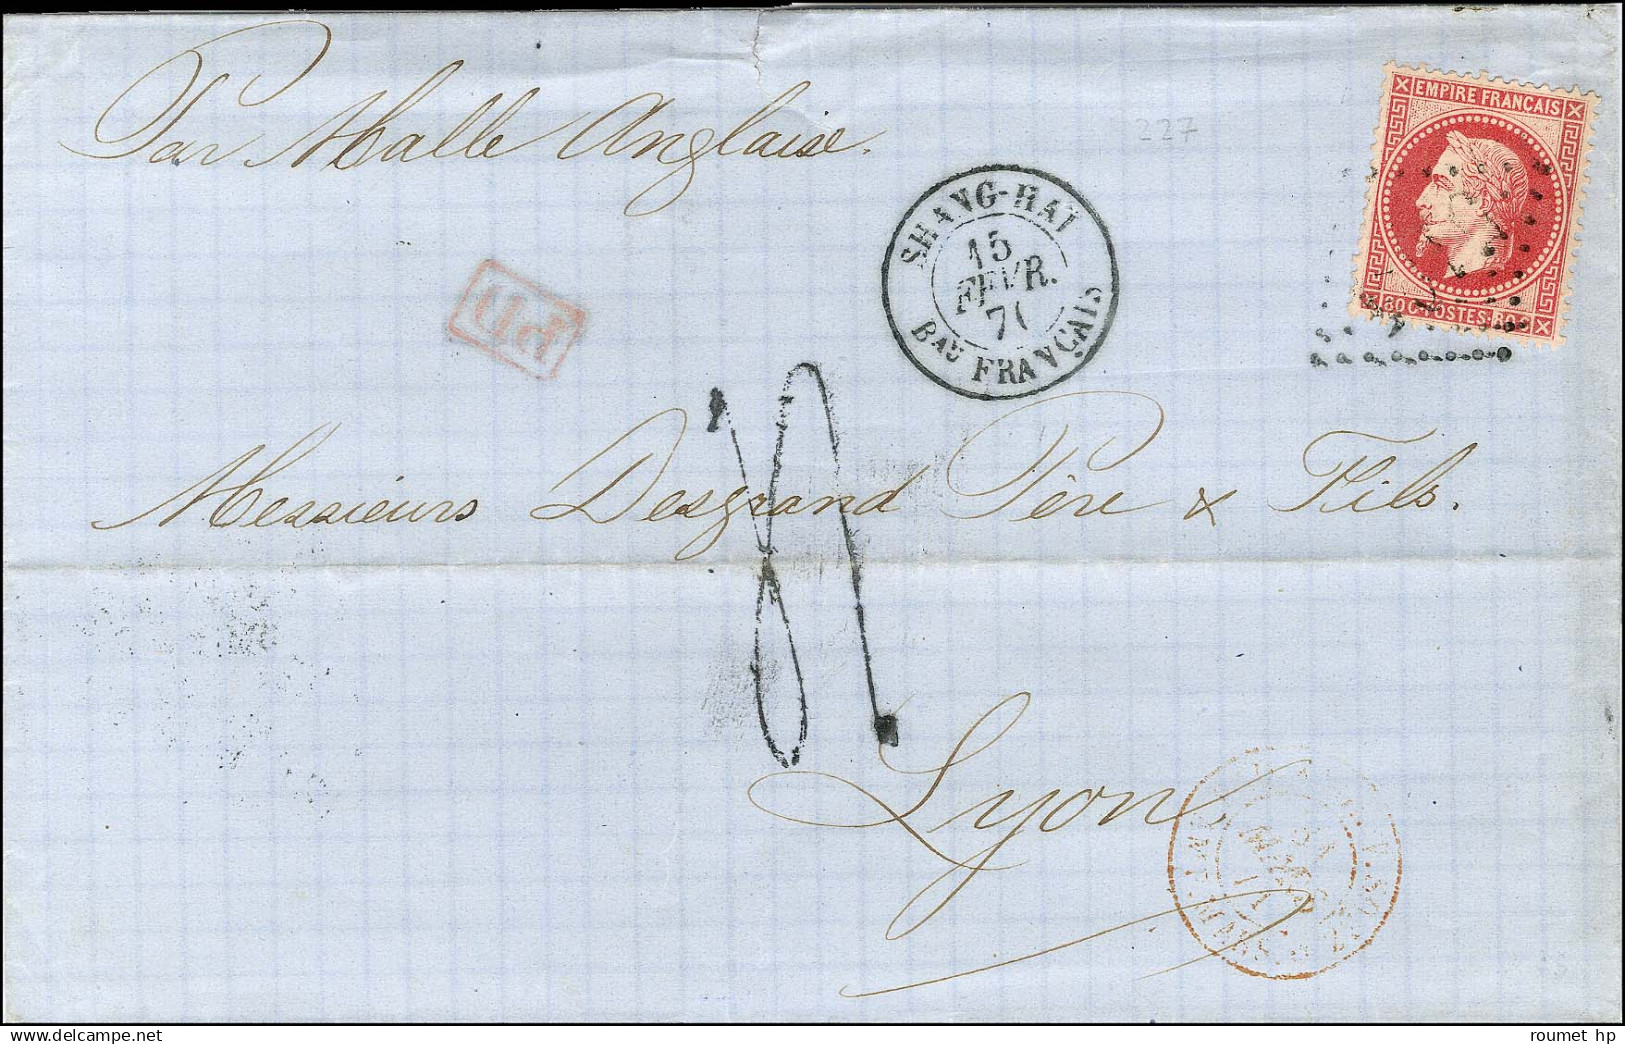 Par Malle Anglaise.
227
EMPIRE FRANÇAIS
80 C POSTES 80 C
SHANG-HAI
15
FEVR.
BAU FRANÇAIS
PD
Messieurs Desgrand Père & Fils.
Lyon
MARS
roumet hp